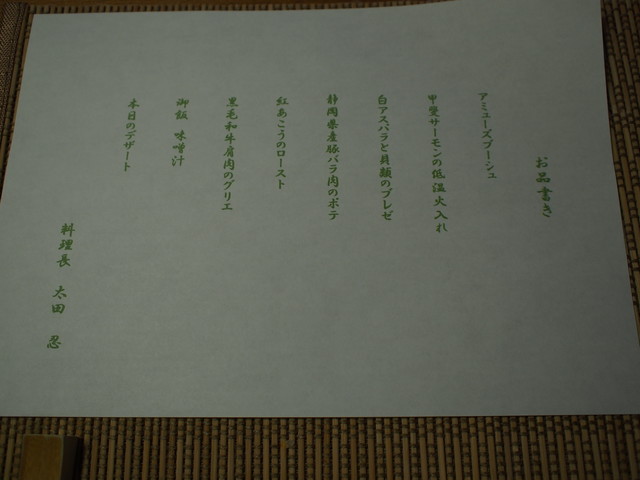 お品書き
アミューズブーシュ
甲斐サーモンの低温火入れ
白アスパラと貝類のブレゼ
静岡県産豚バラ肉のポテ
紅あこうのロースト
黒毛和牛肩肉のグリエ
御飯 味噌汁
本日のデザート
料理長 太田 忍